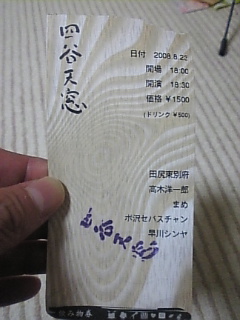 四谷天窓
日付 2008.8.22
開場 18:00
開演 18:30
価格 ¥1500
(ドリンク ¥500)
田尻東別府
高木洋一郎
まめ
水沢セバスチャン
早川シンヤ